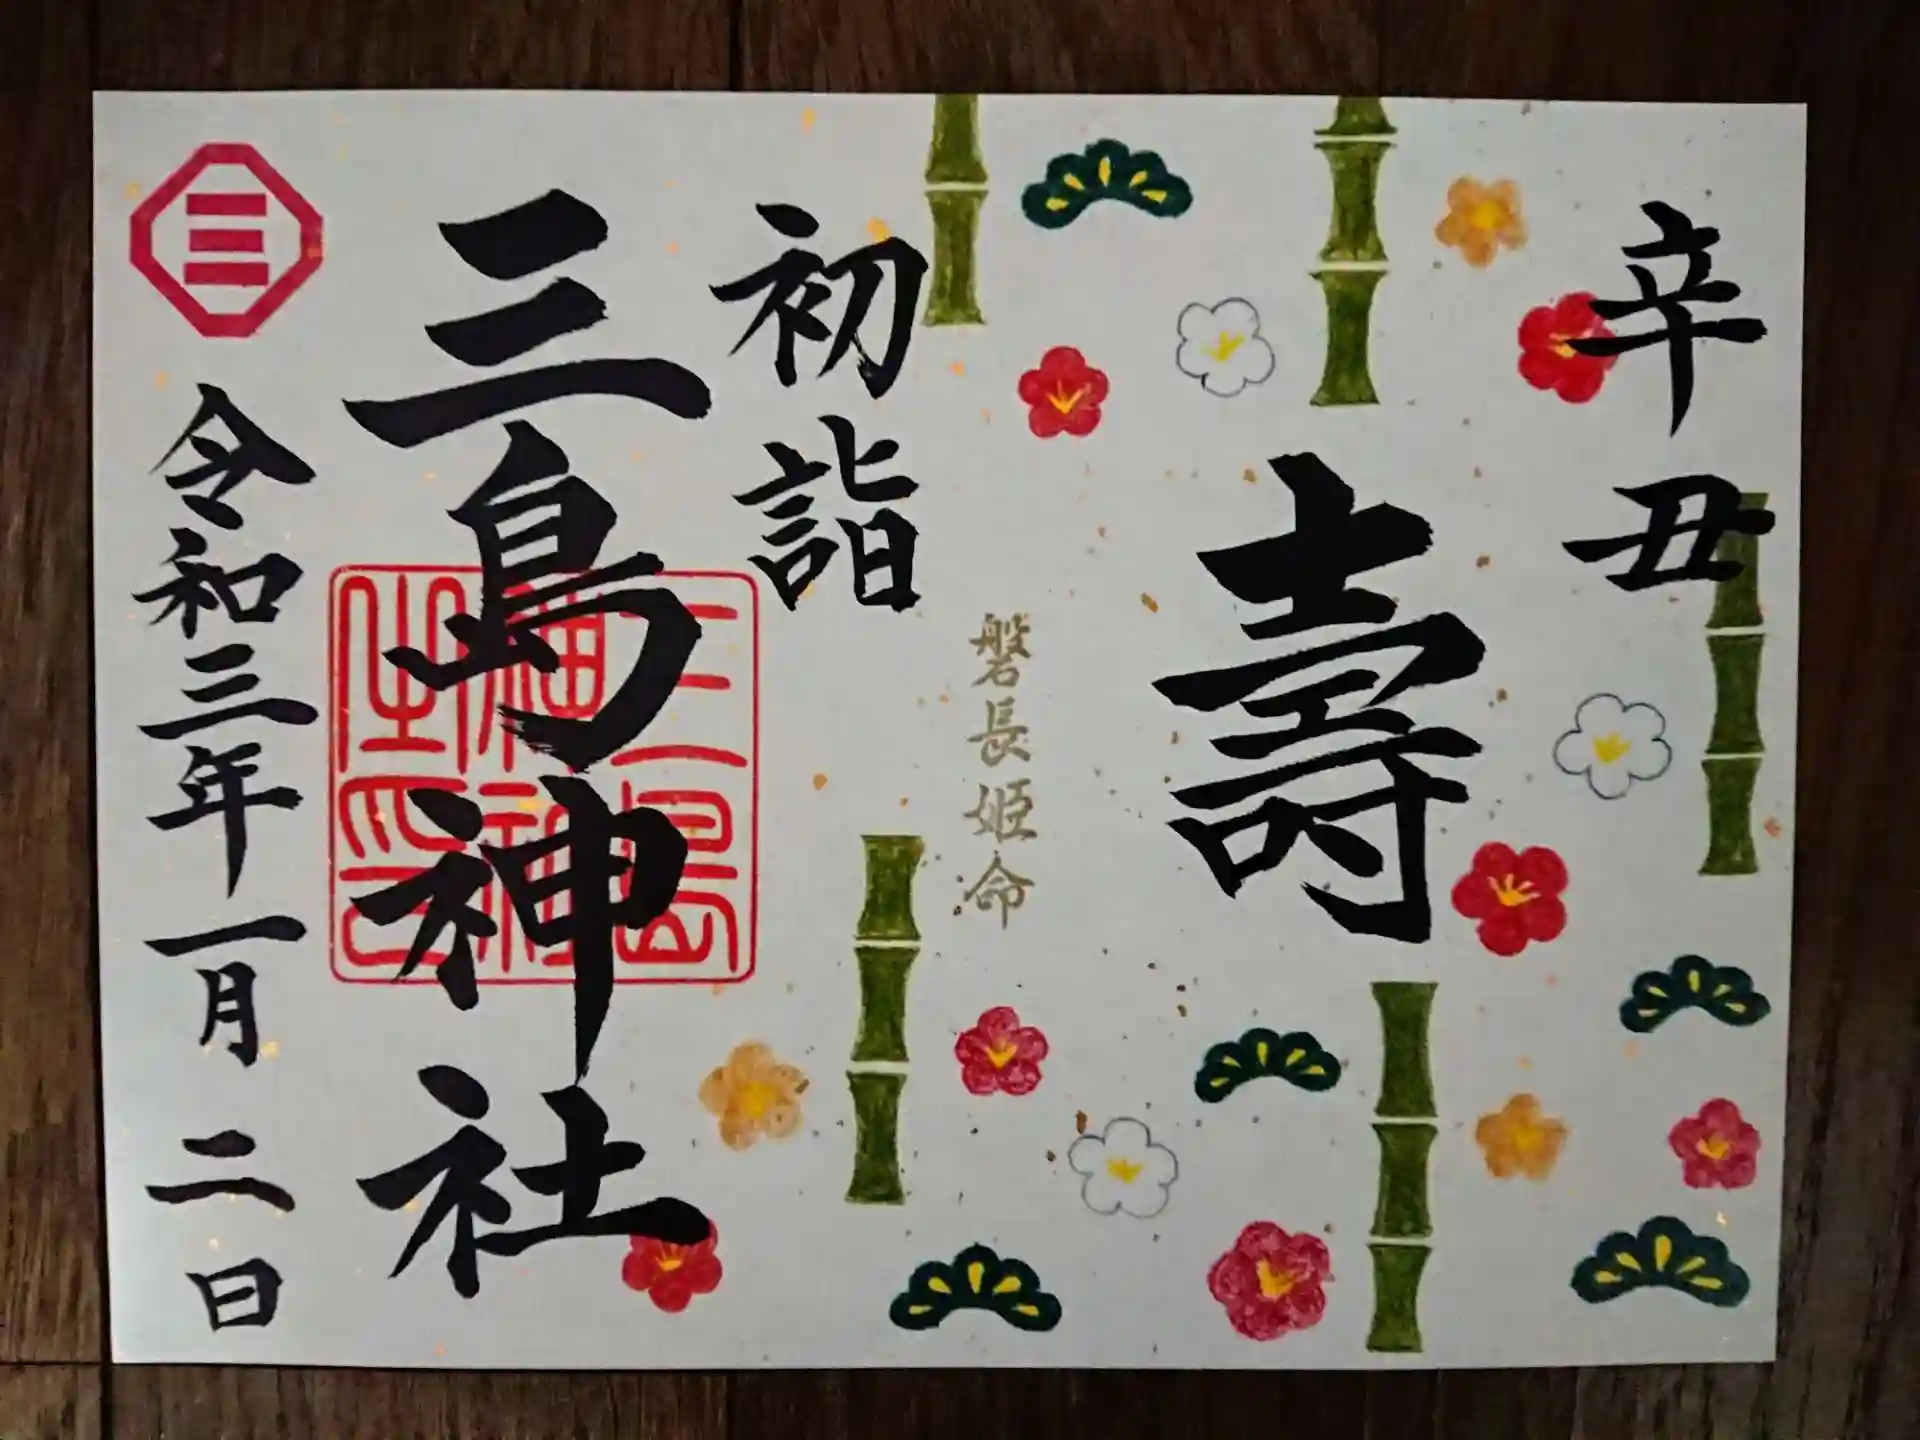 辛丑
壽
磐長姫命
初詣
三島神社
令和三年一月二日
三